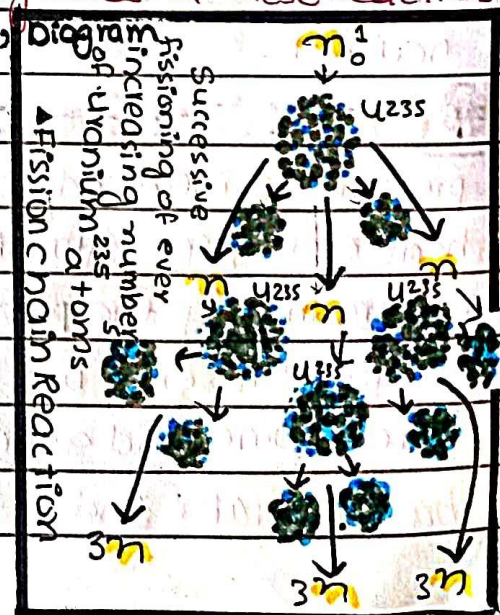 Diagram
n¹₀
U235
Successive
fissioning of ever
increasing number
of uranium 235 atoms
▲Fission chain Reaction
n
U235
n
U235
n
U235
3n
3n
3n